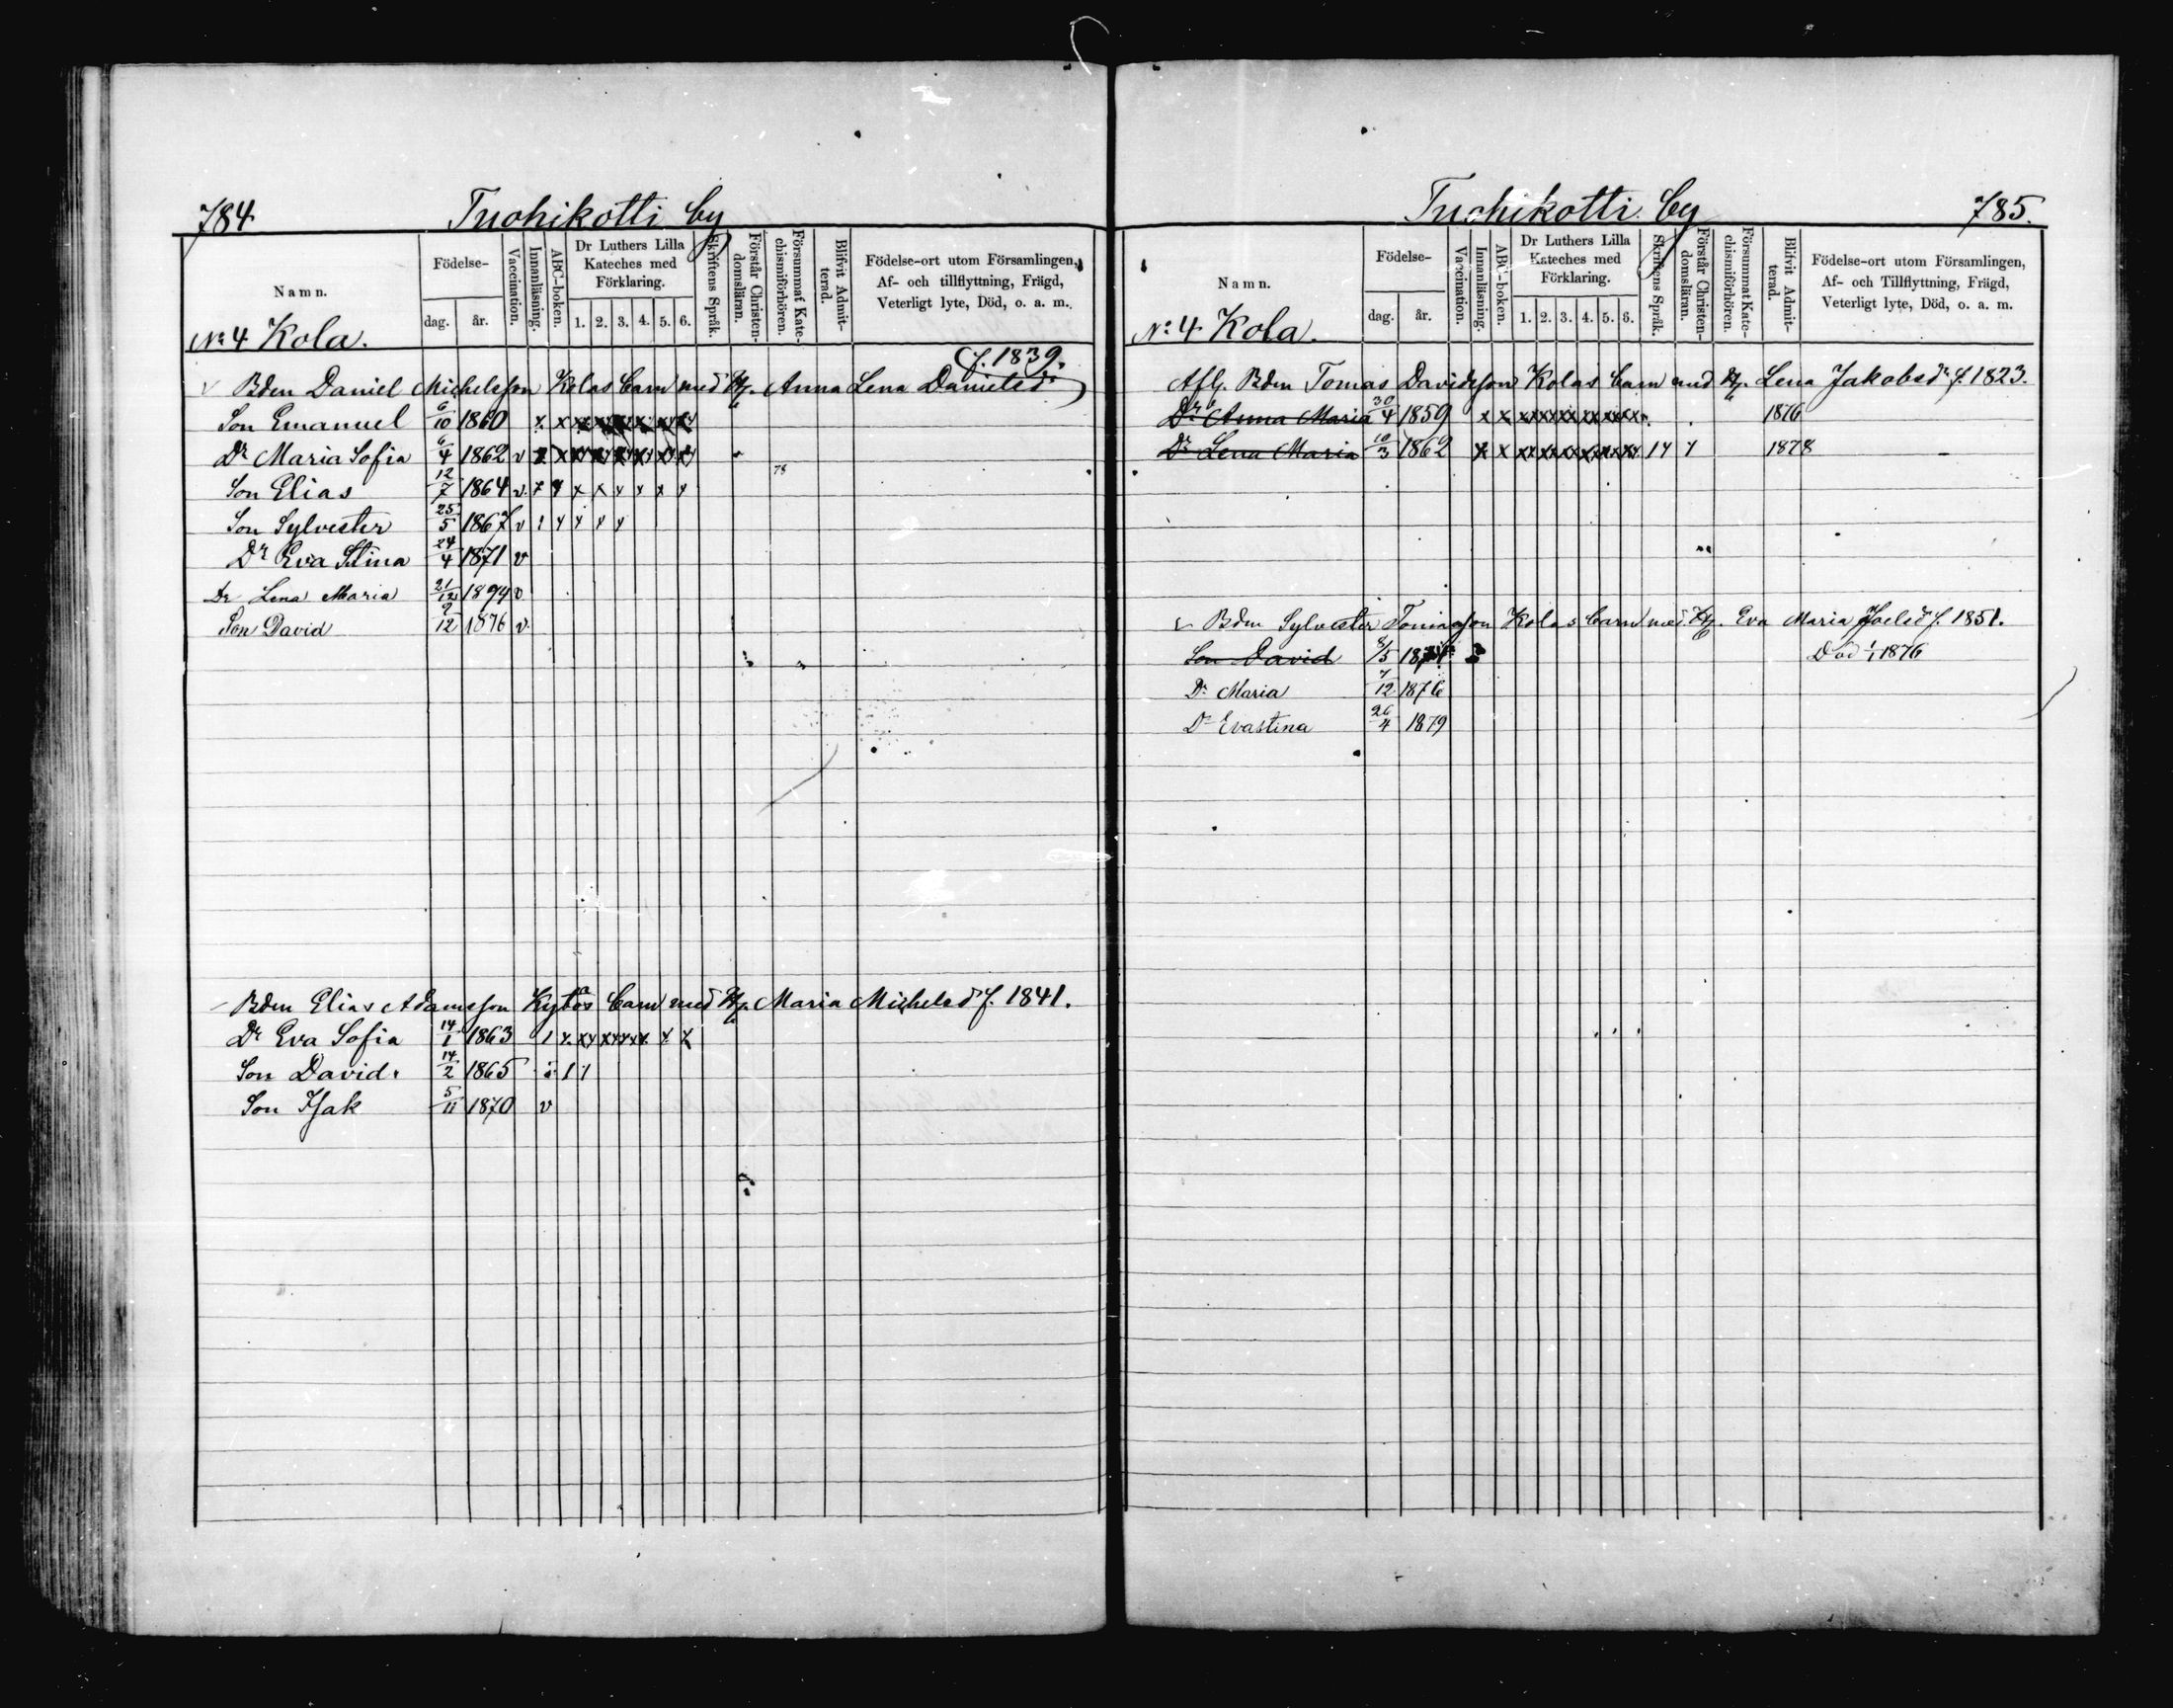 784 Tuohikotti by
Namn.
Födelse-
dag. år.
Vaccination.
Innanläsning.
ABC-boken.
Dr Luthers Lilla Kateches med Förklaring.
1. 2. 3. 4. 5. 6.
Skriftens Språk.
Förstår Christendomsläran.
Försummat Katechismiförhören.
Blifvit Admitterad.
Födelse-ort utom Församlingen,
Af- och tillflyttning, Frägd,
Veterligt lyte, Död, o. a. m.
No 4 Kola.
f. 1839.
v Bden Daniel Michelsson Kolas barn med Hu. Anna Lena Danielsdr
Son Emanuel 6/10 1860 x x x x x x x x
Dr Maria Sofia 6/4 1862 v x x x x x x x x
78
Son Elias 12/7 1864 v x x x x x x x x
Son Sylvester 25/5 1867 v x x x x
Dr Eva Stina 24/4 1871 v
Dr Lena Maria 21/12 1894 v
Son David 9/12 1876 v
Bden Elias Adamsson barn med Hu. Maria Michelsdr f. 1841.
Dr Eva Sofia 14/1 1863 / x x x x x x x
Son David 14/2 1865 / /
Son Isak 5/11 1870 v
Tuohikotti by 785.
Namn.
Födelse-
dag. år.
Vaccination.
Innanläsning.
ABC-boken.
Dr Luthers Lilla Kateches med Förklaring.
1. 2. 3. 4. 5. 6.
Skriftens Språk.
Förstår Christendomsläran.
Försummat Katechismiförhören.
Blifvit Admitterad.
Födelse-ort utom Församlingen,
Af- och Tillflyttning, Frägd,
Veterligt lyte, Död, o. a. m.
No 4 Kola.
Afl. Bden Tomas Davidsson Kolas barn med Hu. Lena Jakobsdr f. 1823.
Dr Anna Maria 30/4 1859 x x x x x x x x 1876
Dr Lena Maria 10/3 1862 x x x x x x x x 1878
v Bden Sylvester Tomasson Kolas barn med Hu. Eva Maria Joelsdr f. 1851.
Son David 8/5 Död 1/1 1876
Dr Maria 7/12 1876
Dr Evastina 26/4 1879